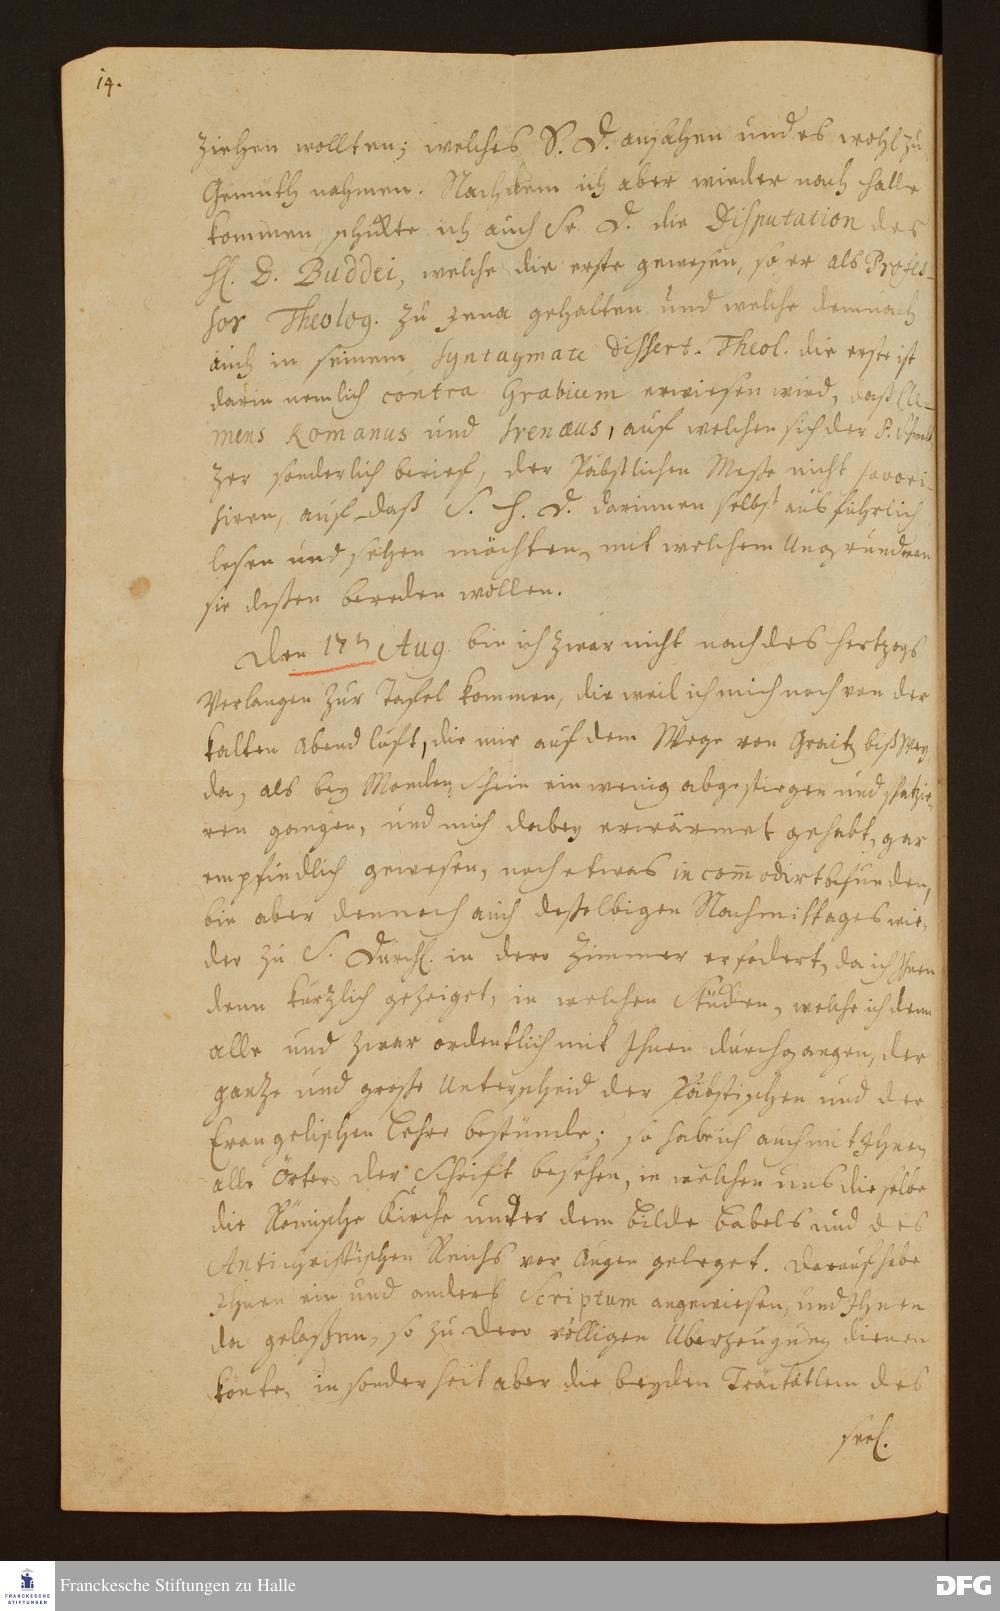 14.
ziehen wollten; welches S. D. ansahen und es wohl zu
Gemüth nahmen. Nachdem ich aber wieder nach Halle
kommen, schickte ich auch Sr. D. die Disputation des
H. D. Buddei, welche die erste gewesen, so er als Profes-
sor Theolog. zu Jena gehalten und welche demnach
auch in seinem Syntagmate dissert. Theol. die erste ist
darin nemlich contra Grabium erwiesen wird, daß Cle-
mens Romanus und Irenæus, auf welchen sich der P.
zer sonderlich berief, der Päbstlichen Messe nicht favori-
siren, auf daß S. H. D. darinnen selbst ausführlich
lesen und sehen möchten, mit welchem Ungrund man
sie deßen bereden wollen.
Den 17ten Aug. bin ich zwar nicht nach des Hertzogs
Verlangen zur Tafel kommen, dieweil ich mich noch von der
kalten Abend luft, die mir auf dem Wege von Graitz biß Wey-
da, als bey Monden Schein ein wenig abgestiegen und spatzie-
ren gangen, und mich dabey erwärmet gehabt, gar
empfindlich gewesen, noch etwas incom̄odirt befunden,
bin aber dennoch auch deßelbigen Nachmittages wie-
der zu S. Durchl. in dero Zimmer erfodert, da ich Ihnen
denn kürtzlich gezeiget, in welchen Stücken, welche ich denn
alle und zwar ordentlich mit Ihnen durchgangen, der
gantze und große Unterscheid der Päbstischen und der
Evangelischen Lehre bestünde; so habe ich auch mit Ihnen
alle Örter der Schrift besehen, in welchen uns dieselbe
die Römische Kirche unter dem Bilde Babels und des
Antichristischen Reichs vor Augen geleget. Darauf habe
Ihnen ein und anders Scriptum angewiesen, und Ihnen
da gelaßen, so zu dero völligen Uberzeugung dienen
konte, insonderheit aber die beyden Tractätlein des
seel.
FRANCKESCHE STIFTUNGEN
Franckesche Stiftungen zu Halle
DFG